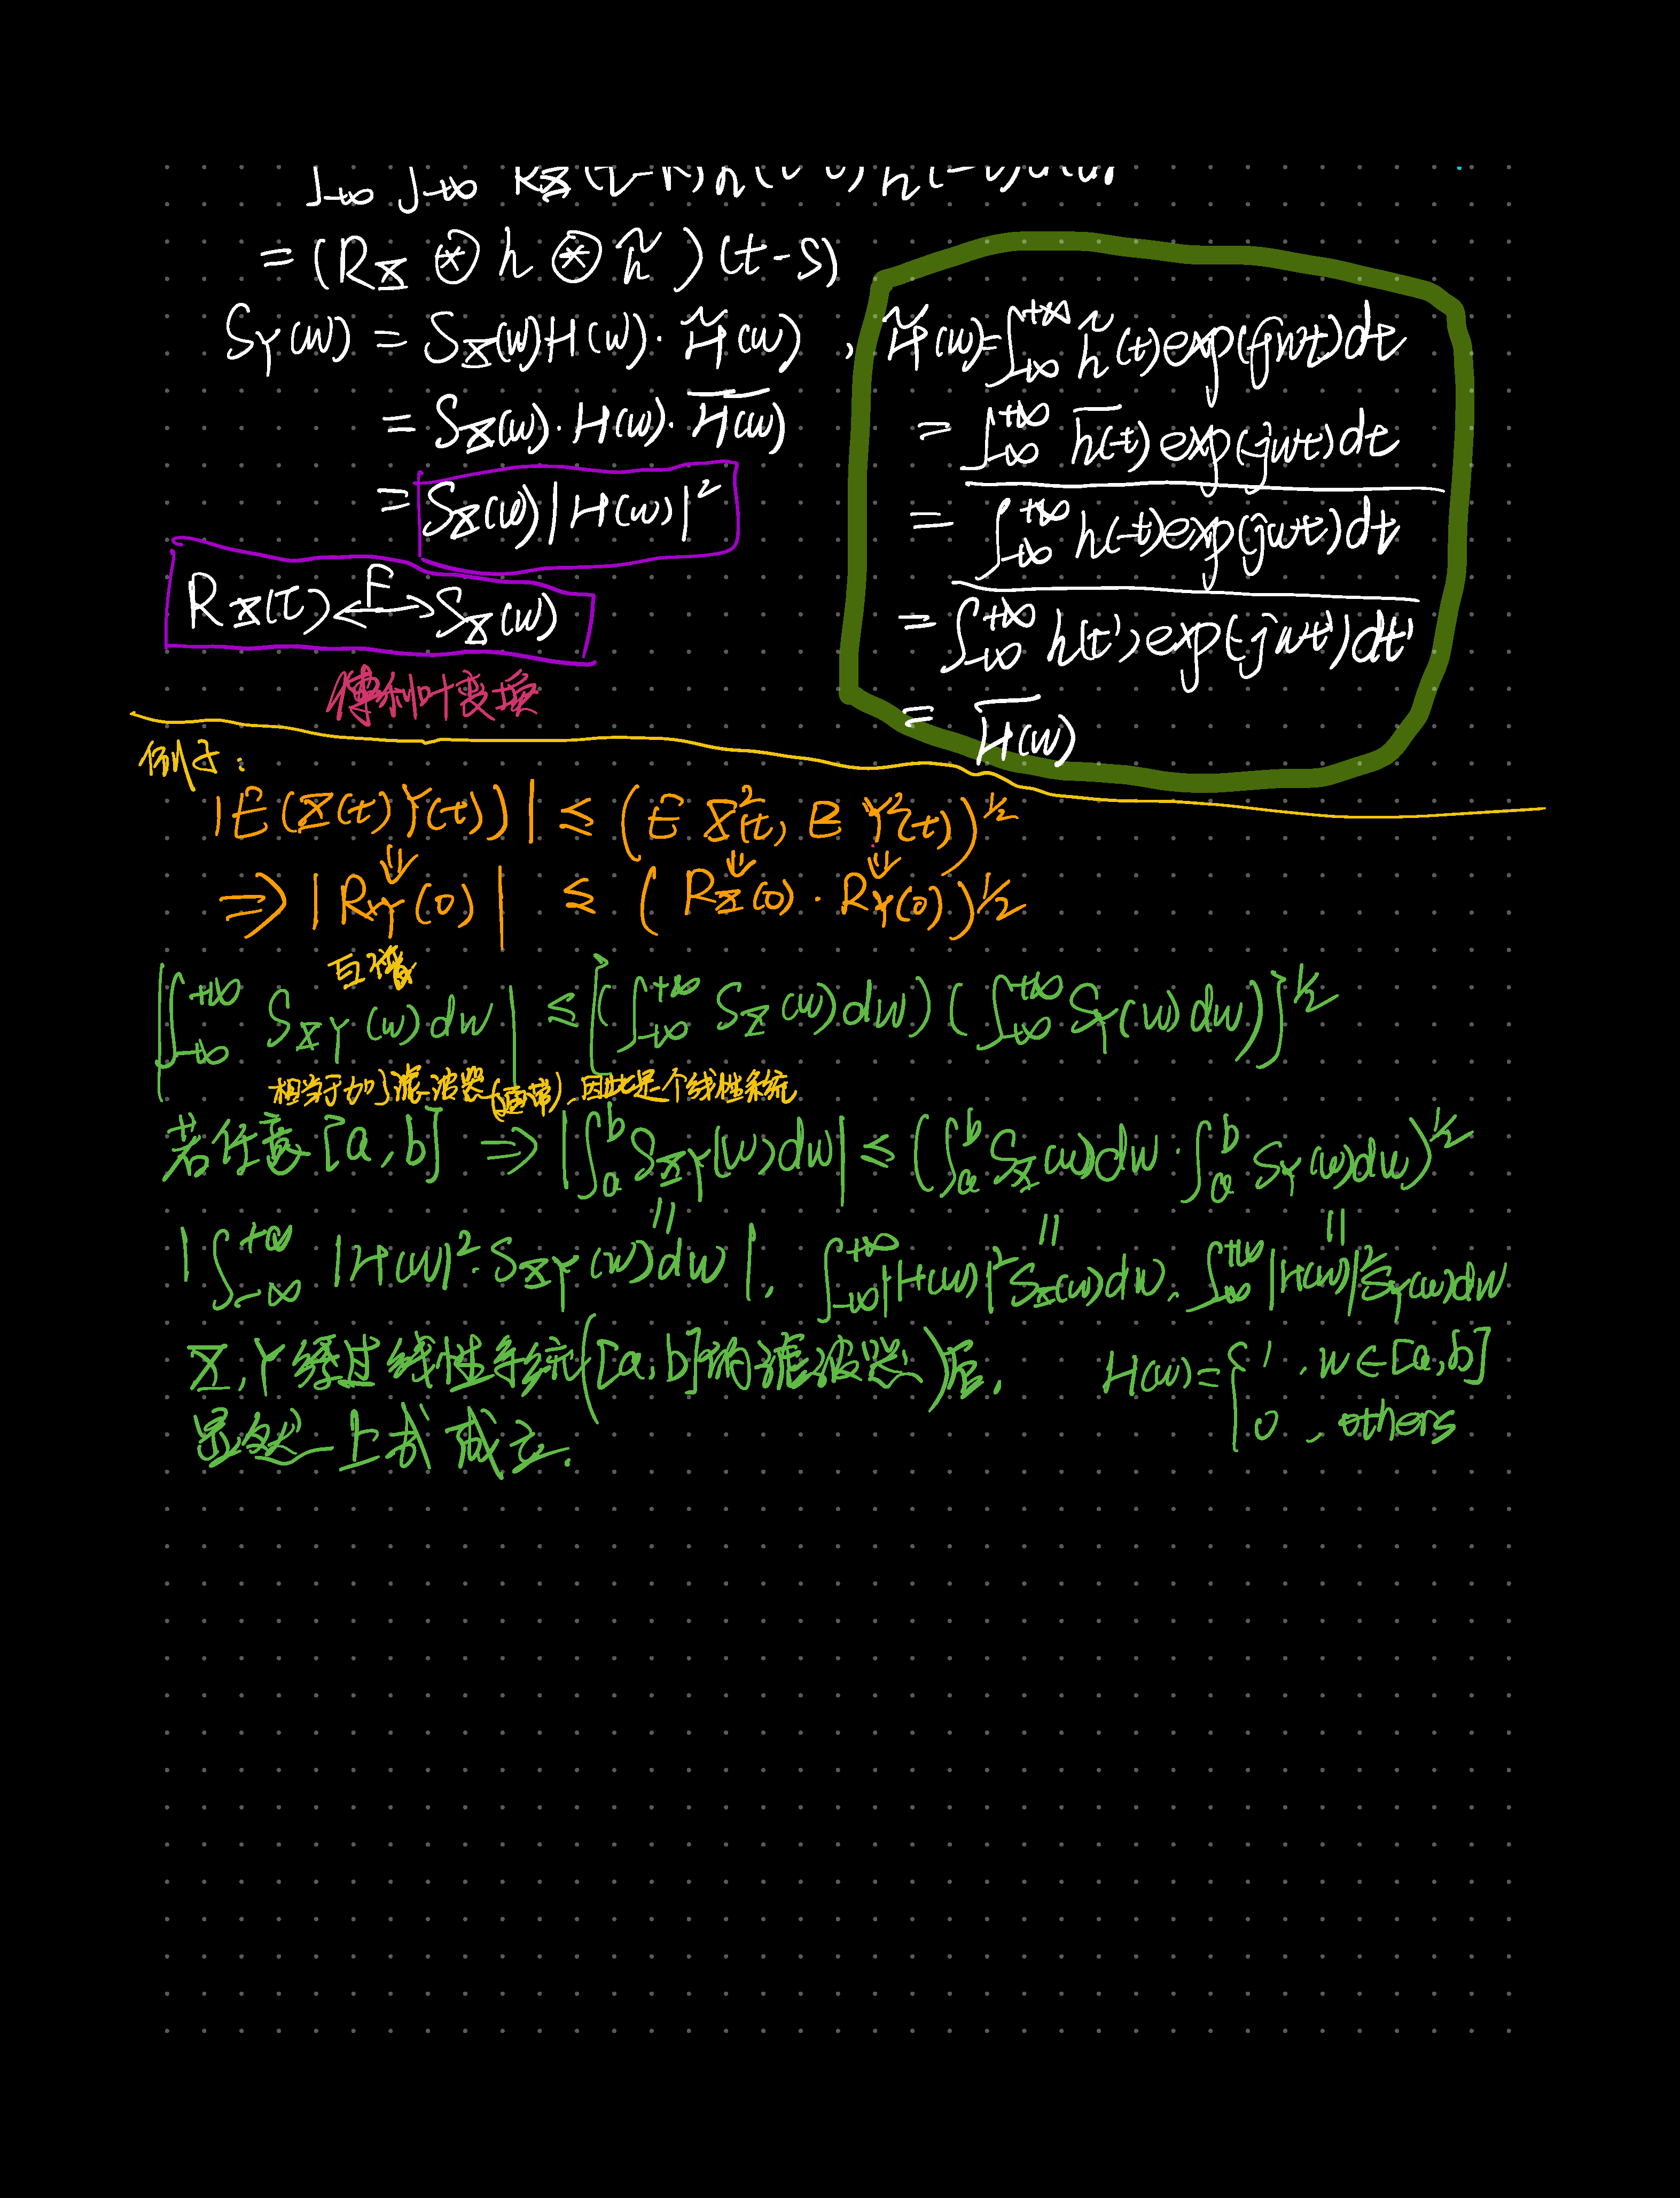 = (R_X ⊛ h ⊛ h̃)(t-s)
S_Y(w) = S_X(w)H(w)·H̃(w) , H̃(w)=∫_{-∞}^{+∞} h̃(t)exp(-jwt)dt
= S_X(w)·H(w)·\overline{H(w)}
= ∫_{-∞}^{+∞} \overline{h(-t)} exp(-jwt)dt
= S_X(w)|H(w)|²
= \overline{∫_{-∞}^{+∞} h(-t)exp(jwt)dt}
R_X(τ) ←F→ S_X(w)
= \overline{∫_{-∞}^{+∞} h(t')exp(-jwt')dt'}
傅利叶变换
= \overline{H(w)}
例子:
|E(X(t)Y(t))| ≤ (E X²(t), E Y²(t))^{1/2}
⇓ ⇓ ⇓
⇒ |R_{XY}(0)| ≤ (R_X(0)·R_Y(0))^{1/2}
互谱
|∫_{-∞}^{+∞} S_{XY}(w)dw| ≤ [(∫_{-∞}^{+∞} S_X(w)dw)(∫_{-∞}^{+∞} S_Y(w)dw)]^{1/2}
相当于加了滤波器(通带),因此是个线性系统
若任意[a,b] ⇒ |∫_a^b S_{XY}(w)dw| ≤ (∫_a^b S_X(w)dw·∫_a^b S_Y(w)dw)^{1/2}
|∫_{-∞}^{+∞} |H(w)|²·S_{XY}(w)dw|, ∫_{-∞}^{+∞}|H(w)|²S_X(w)dw, ∫_{-∞}^{+∞}|H(w)|²S_Y(w)dw
X,Y经过线性系统([a,b]的滤波器)后, H(w)={1, w∈[a,b]
显然上式成立. 0, others